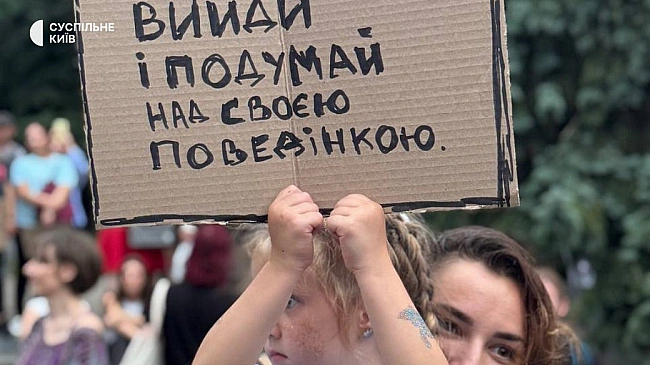 СУСПІЛЬНЕ
КИЇВ
ВИЙДИ
І ПОДУМАЙ
НАД СВОЄЮ
ПОВЕДІНКОЮ.